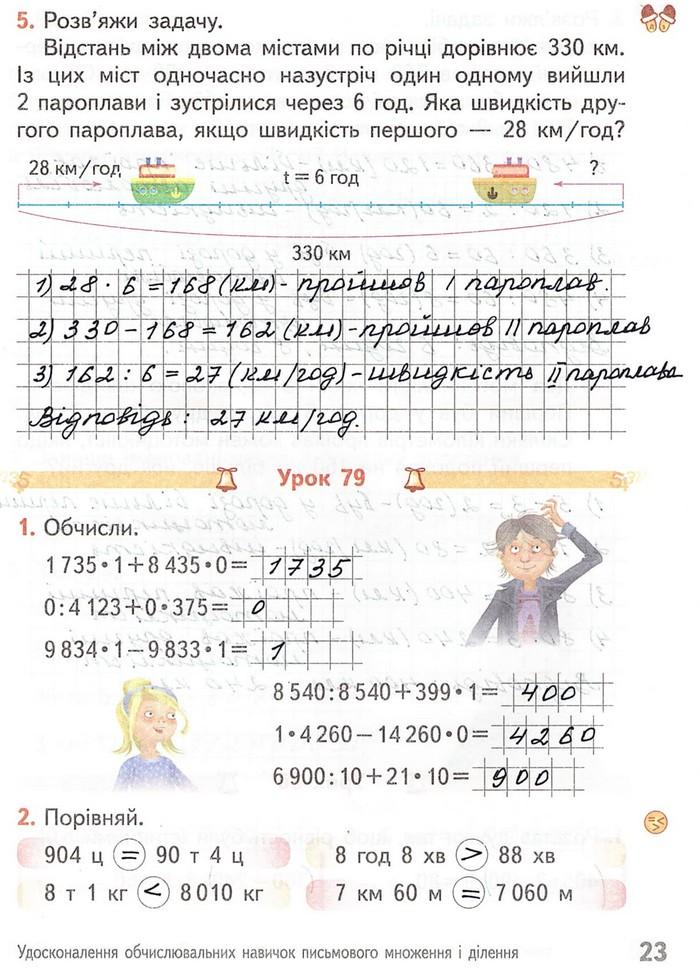 5. Розв’яжи задачу.
Відстань між двома містами по річці дорівнює 330 км.
Із цих міст одночасно назустріч один одному вийшли
2 пароплави і зустрілися через 6 год. Яка швидкість дру-
гого пароплава, якщо швидкість першого — 28 км/год?
28 км/год t = 6 год ?
330 км
1) 28 · 6 = 168 (км) - пройшов I пароплав.
2) 330 - 168 = 162 (км) - пройшов II пароплав
3) 162 : 6 = 27 (км/год) - швидкість II пароплава
Відповідь: 27 км/год.
Урок 79
1. Обчисли.
1 735 • 1 + 8 435 • 0 = 1735
0 : 4 123 + 0 • 375 = 0
9 834 • 1 − 9 833 • 1 = 1
8 540 : 8 540 + 399 • 1 = 400
1 • 4 260 − 14 260 • 0 = 4260
6 900 : 10 + 21 • 10 = 900
2. Порівняй.
904 ц = 90 т 4 ц 8 год 8 хв > 88 хв
8 т 1 кг < 8 010 кг 7 км 60 м = 7 060 м
Удосконалення обчислювальних навичок письмового множення і ділення 23